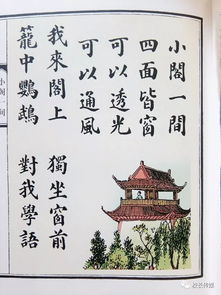 小閣一間
四面皆窗
可以透光
可以通風
我來閣上　獨坐窗前
籠中鸚鵡　對我學語
小閣一間